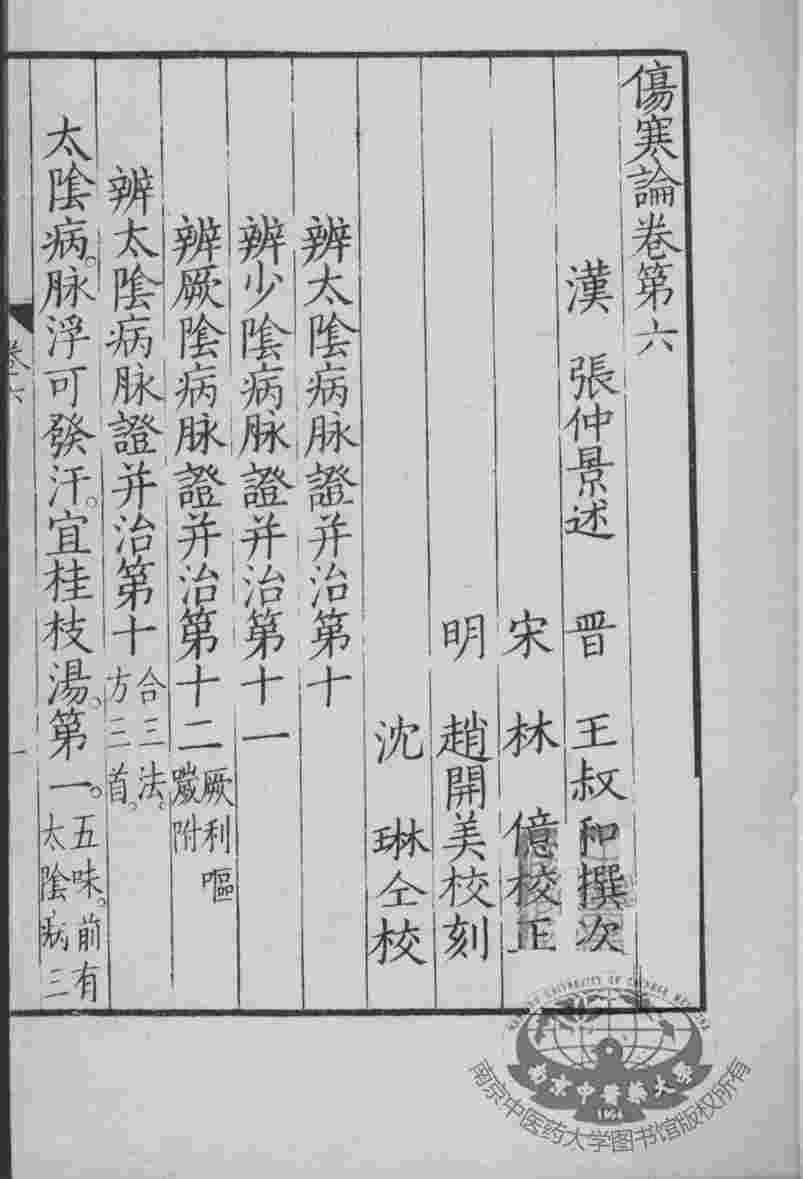 傷寒論卷第六
漢　張仲景述　晋　王叔和撰次
宋　林　億校正
明　趙開美校刻
沈　琳仝校
辨太陰病脉證并治第十
辨少陰病脉證并治第十一
辨厥陰病脉證并治第十二厥利嘔噦附
辨太陰病脉證并治第十合三法。方三首。
太陰病。脉浮可發汗。宜桂枝湯。第一。五味。前有太陰病三
卷六
一
南京中醫藥大學
1954
南京中医药大学图书馆版权所有